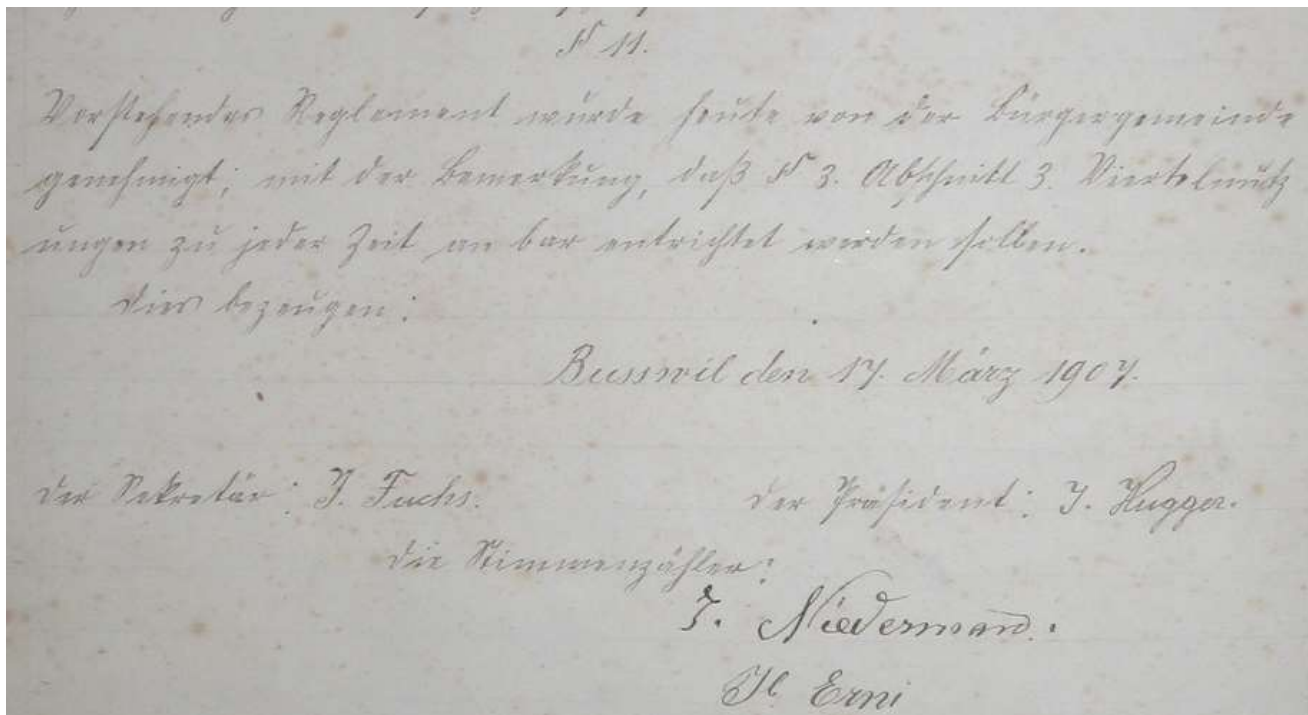 § 11.
Vorstehendes Reglement wurde heute von der Bürgergemeinde
genehmigt; mit der Bemerkung, daß § 3. Abschnitt 3. Viertelnutz
ungen zu jeder Zeit an bar entrichtet werden sollen.
Dies bezeugen:
Busswil den 17. März 1907.
Der Sekretär: J. Fuchs.
Der Präsident: J. Hugger.
Die Stimmenzähler:
J. Niederman.
Erni